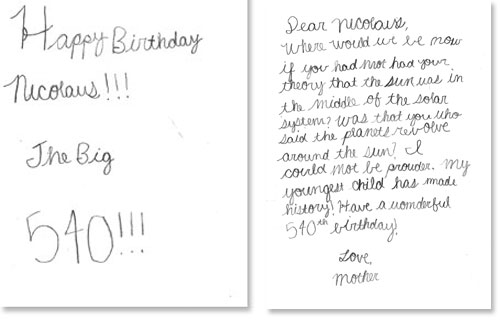 Happy Birthday
Nicolaus!!!
The Big
540!!!
Dear Nicolaus,
Where would we be now
if you had not had your
theory that the sun was in
the middle of the solar
system? Was that you who
said the planets revolve
around the sun? I
could not be prouder. My
youngest child has made
history! Have a wonderful
540th birthday!
Love,
Mother